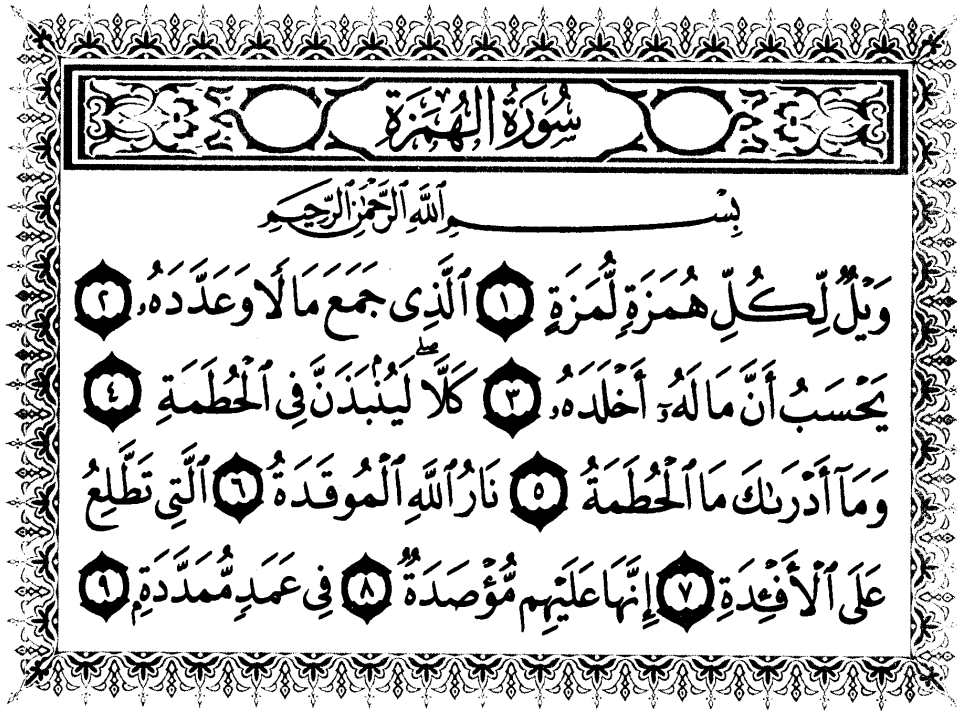 سُورَةُ الهُمَزَةِ
بِسْمِ ٱللَّهِ ٱلرَّحْمَٰنِ ٱلرَّحِيمِ
وَيْلٌ لِّكُلِّ هُمَزَةٍ لُّمَزَةٍ ١ ٱلَّذِى جَمَعَ مَالًا وَعَدَّدَهُۥ ٢
يَحْسَبُ أَنَّ مَالَهُۥٓ أَخْلَدَهُۥ ٣ كَلَّا ۖ لَيُنۢبَذَنَّ فِى ٱلْحُطَمَةِ ٤
وَمَآ أَدْرَىٰكَ مَا ٱلْحُطَمَةُ ٥ نَارُ ٱللَّهِ ٱلْمُوقَدَةُ ٦ ٱلَّتِى تَطَّلِعُ
عَلَى ٱلْأَفْـِٔدَةِ ٧ إِنَّهَا عَلَيْهِم مُّؤْصَدَةٌ ٨ فِى عَمَدٍ مُّمَدَّدَةٍۭ ٩